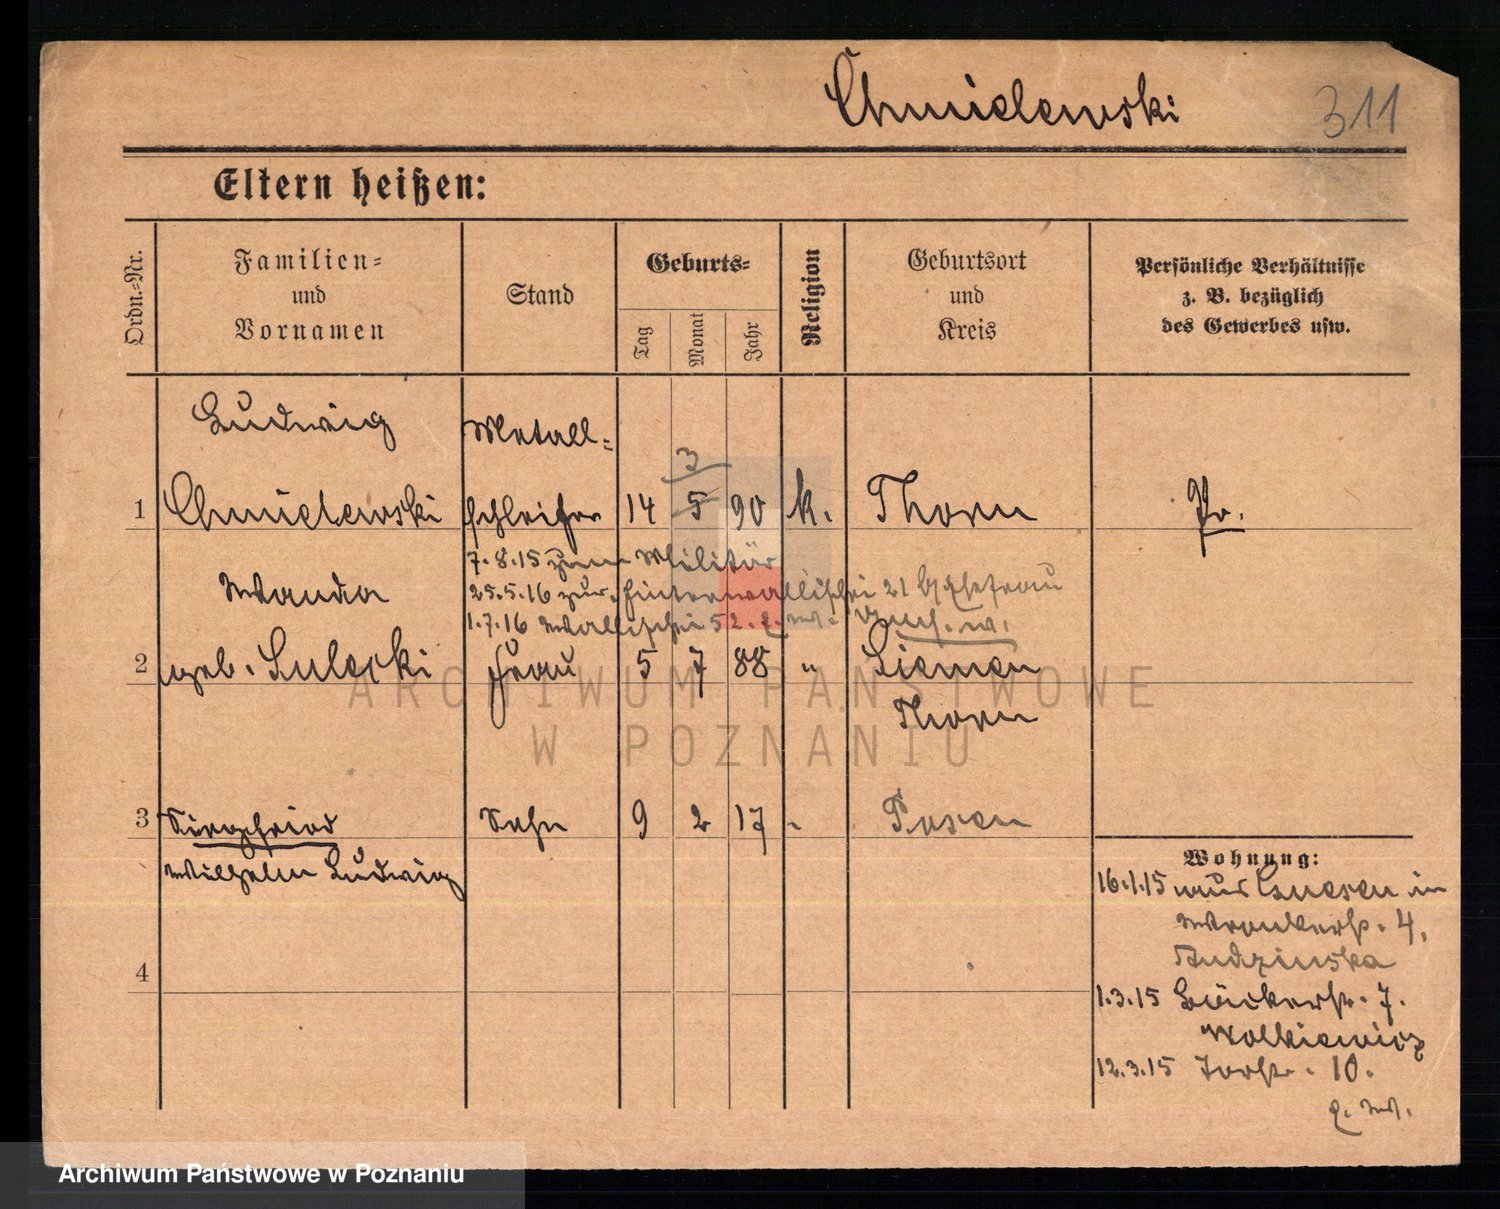 Chmielewski 311
Eltern heißen:
Ordn.-Nr. Familien- und Vornamen Stand Geburts- Tag Monat Jahr Religion Geburtsort und Kreis Persönliche Verhältnisse z. B. bezüglich des Gewerbes usw.
Ludwig Metall-
3
1 Chmielewski schleifer 14 5 90 k. Thorn Pr.
7.8.15 zum Militär
Wanda 25.5.16 zur. Hinterwallischei 21 Ehefrau
1.7.16 Wallischei 52. e. W.
2 geb. Sulecki Frau 5 7 88 " Siemon
Thorn
ARCHIWUM PAŃSTWOWE
W POZNANIU
3 Siegfried Sohn 9 2 17 " Posen
Wilhelm Ludwig
Wohnung:
16.1.15 aus Gnesen in
Wronkerstr. 4.
Rudzinska
1.3.15 Bäckerstr. 7.
Wolkiewicz
4
12.3.15 Torstr. 10.
e. W.
Archiwum Państwowe w Poznaniu